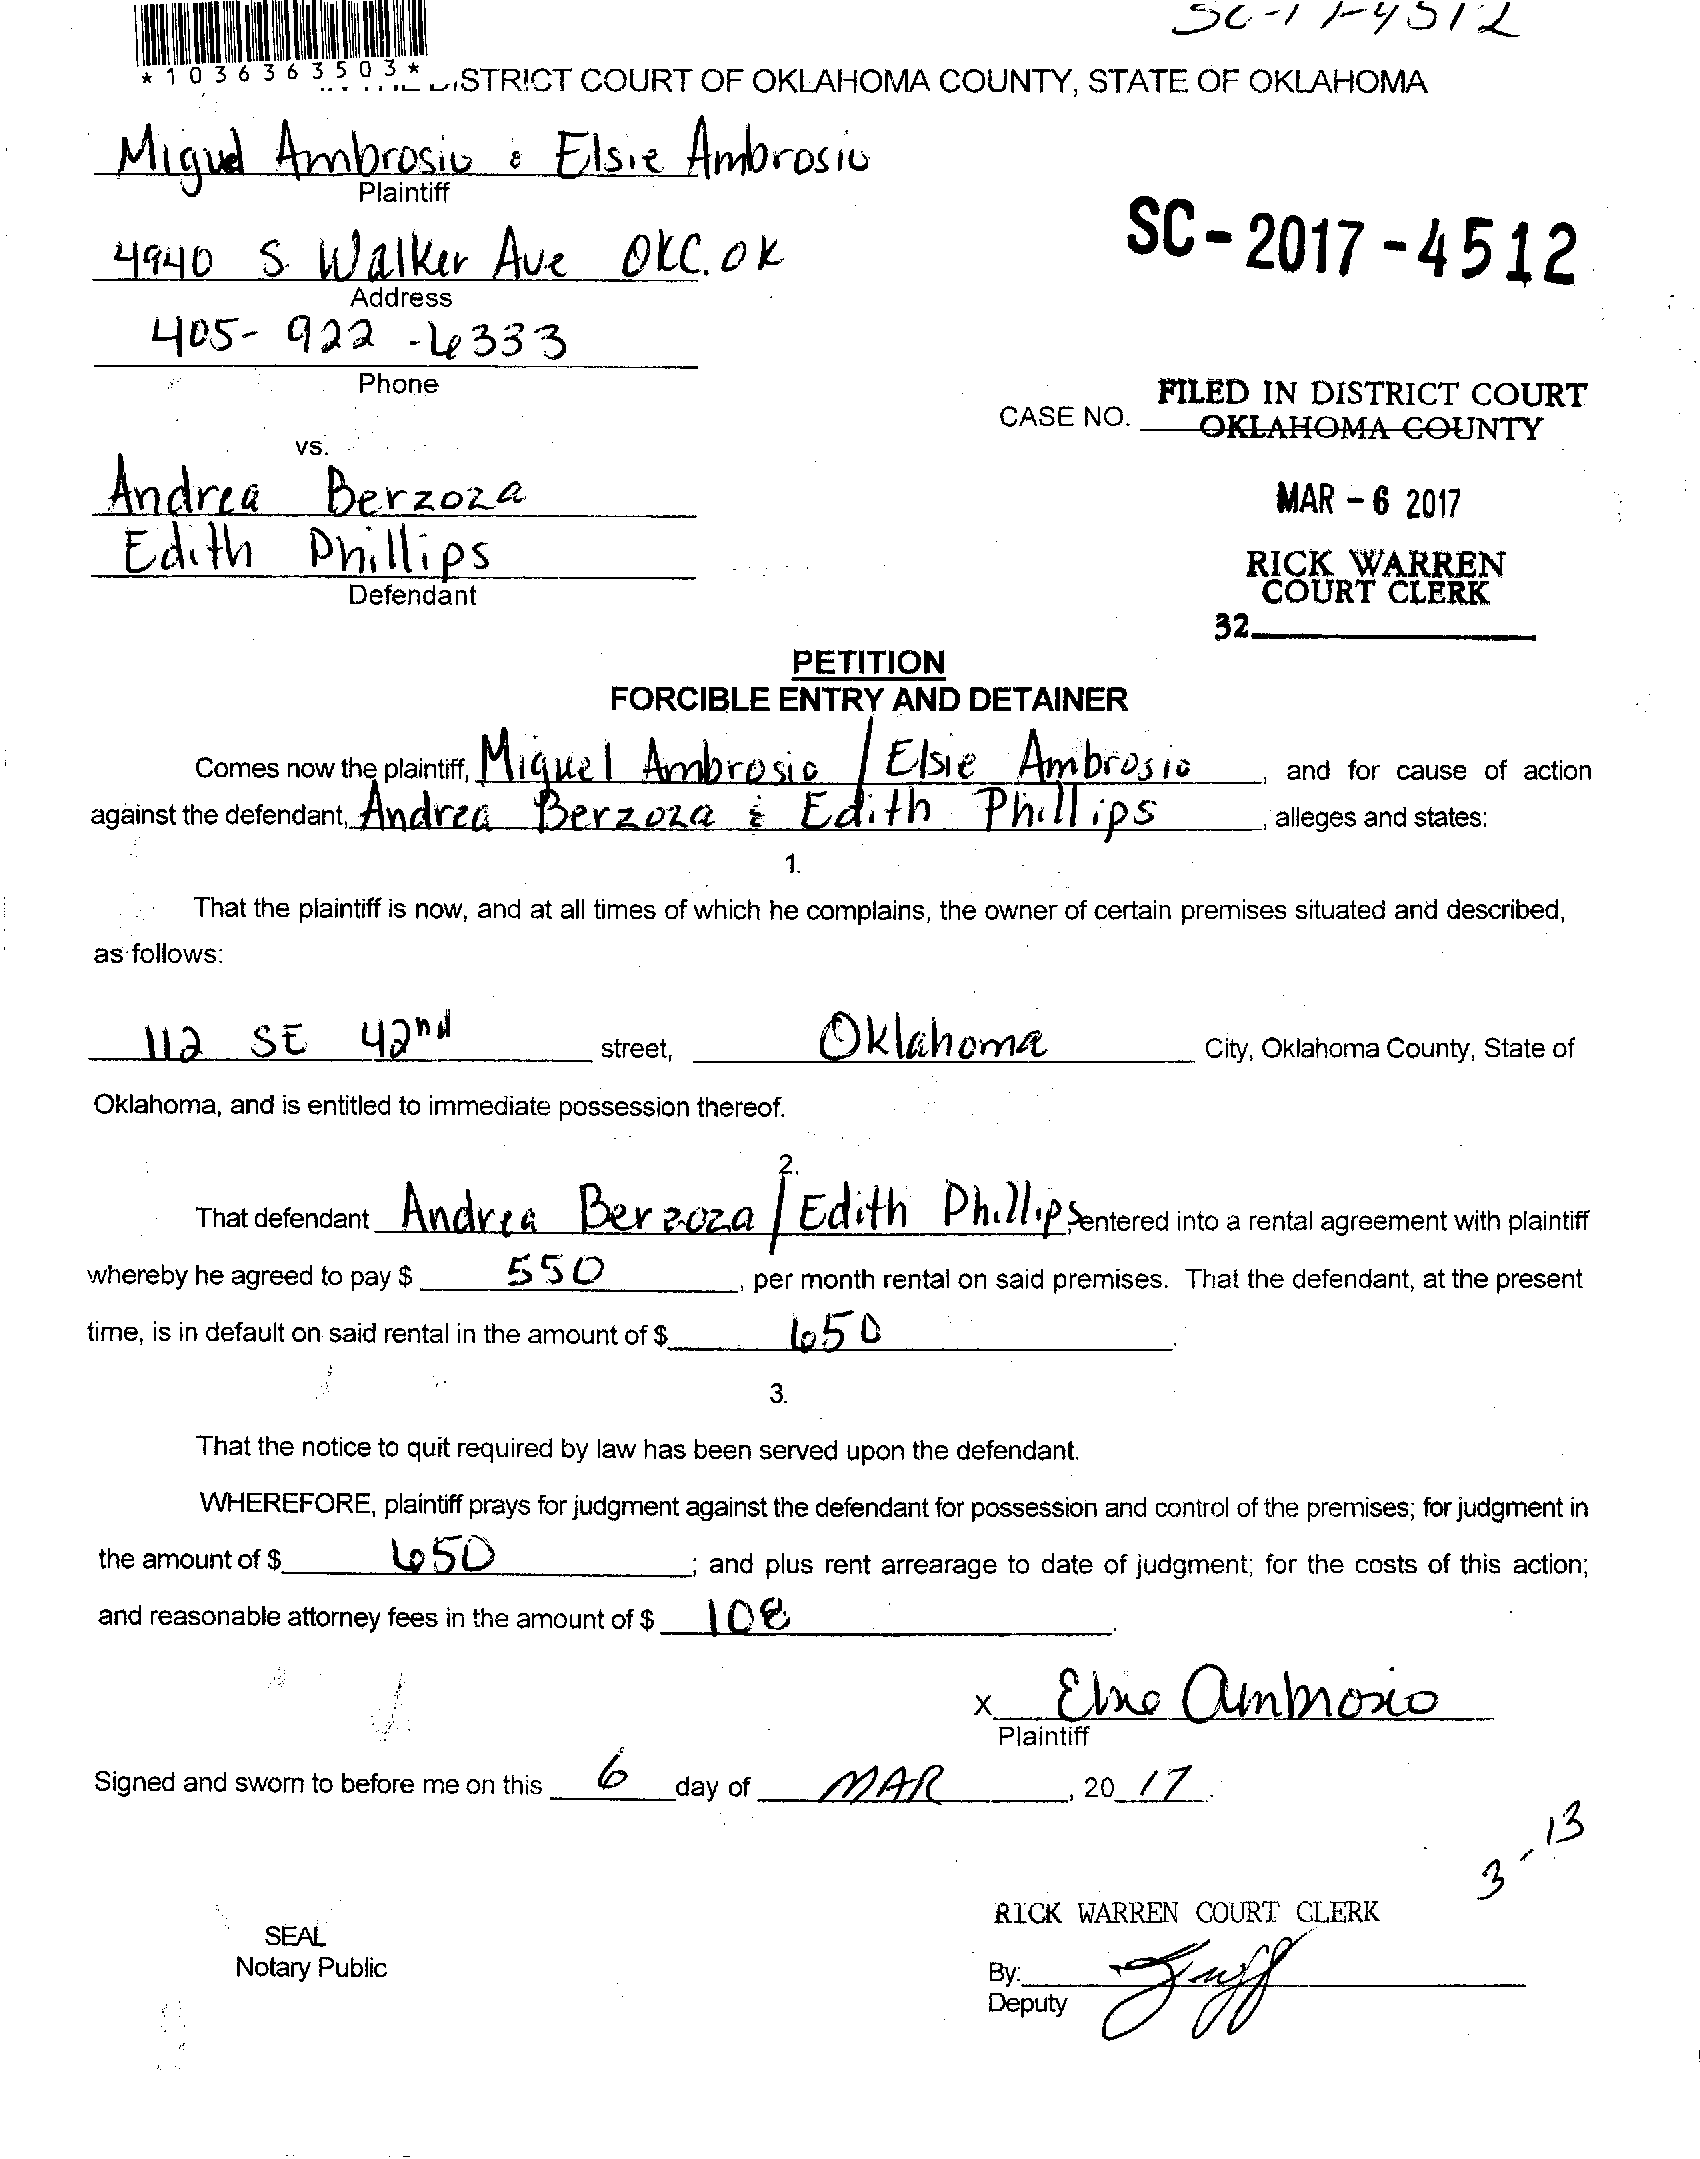 SC-17-4512
*1036363503*
DISTRICT COURT OF OKLAHOMA COUNTY, STATE OF OKLAHOMA
Miguel Ambrosio & Elsie Ambrosio
Plaintiff
4940 S. Walker Ave OKC. OK
Address
SC-2017-4512
405-922-6333
Phone
FILED IN DISTRICT COURT
CASE NO. OKLAHOMA COUNTY
vs.
Andrea Berzoza
MAR -6 2017
Edith Phillips
Defendant
RICK WARREN
COURT CLERK
32
PETITION
FORCIBLE ENTRY AND DETAINER
Comes now the plaintiff, Miguel Ambrosio / Elsie Ambrosio, and for cause of action
against the defendant, Andrea Berzoza & Edith Phillips, alleges and states:
1.
That the plaintiff is now, and at all times of which he complains, the owner of certain premises situated and described,
as follows:
112 SE 42nd street, Oklahoma City, Oklahoma County, State of
Oklahoma, and is entitled to immediate possession thereof.
2.
That defendant Andrea Berzoza / Edith Phillips, entered into a rental agreement with plaintiff
whereby he agreed to pay $ 550, per month rental on said premises. That the defendant, at the present
time, is in default on said rental in the amount of $ 650.
3.
That the notice to quit required by law has been served upon the defendant.
WHEREFORE, plaintiff prays for judgment against the defendant for possession and control of the premises; for judgment in
the amount of $ 650; and plus rent arrearage to date of judgment; for the costs of this action;
and reasonable attorney fees in the amount of $ 108.
x Elsie Ambrosio
Plaintiff
Signed and sworn to before me on this 6 day of MAR, 2017.
3-13
RICK WARREN COURT CLERK
SEAL
Notary Public
By:
Deputy